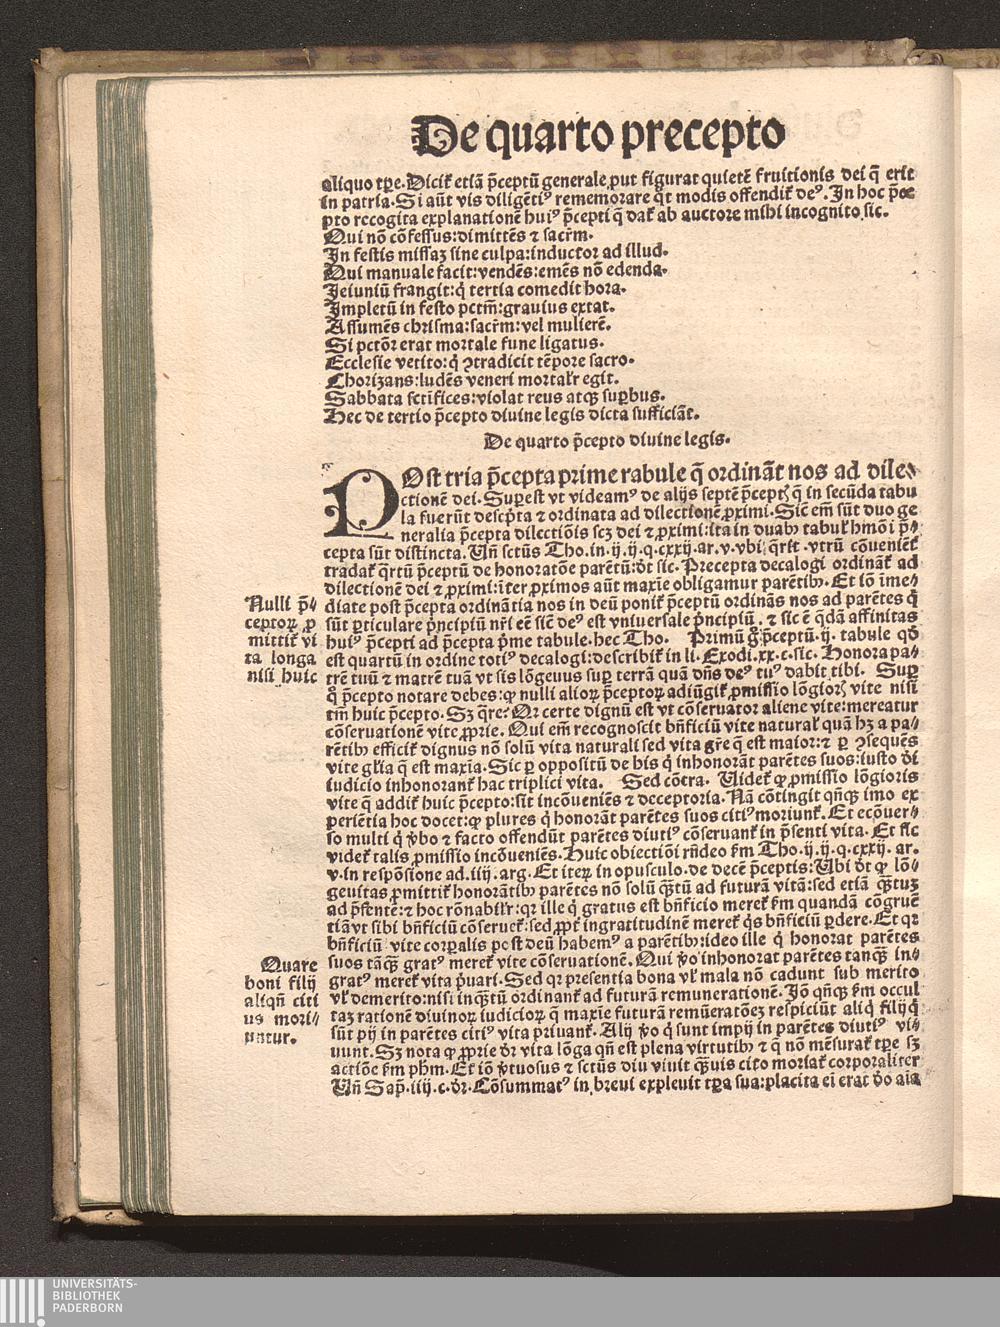 De quarto precepto
aliquo tꝑe. Dicit̃ etiã p̃ceptũ generale ꝓut figurat quietẽ fruitionis dei q̃ erit
in patria. Si aũt vis diligẽtiꝰ rememorare qt̃ modis offendit̃ deꝰ. In hoc p̃ce
pto recogita explanationẽ huiꝰ p̃cepti q̃ dat̃ ab auctore mihi incognito sic.
Qui nõ cõfessus: dimittẽs ⁊ sacr̃m.
In festis missaꝫ sine culpa: inductor ad illud.
Qui manuale facit: vendẽs: emẽs nõ edenda.
Jeiuniũ frangit: q̇ tertia comedit hora.
Impletũ in festo pctm̃: grauius extat.
Assumẽs chrisma: sacr̃m: vel mulierẽ.
Si pctõr erat mortale fune ligatus.
Ecclesie vetito: q̇ ꝯtradicit tẽpore sacro.
Chorizans: ludẽs veneri mortalr̃ egit.
Sabbata sct̃ifices: violat reus atqꝫ suꝑbus.
Hec de tertio p̃cepto diuine legis dicta sufficiãt.
De quarto p̃cepto diuine legis.
POst tria p̃cepta prime tabule q̃ ordinãt nos ad dile⸗
ctionẽ dei. Suꝑest vt videamꝰ de alijs septẽ p̃ceptꝭ q̃ in secũda tabu
la fuerũt descp̃ta ⁊ ordinata ad dilectionẽ ꝓximi. Sic̃ em̃ sũt duo ge
neralia p̃cepta dilectiõis scꝫ dei ⁊ ꝓximi: ita in duabꝰ tabul̃ hmõi p̃⸗
cepta sũt distincta. Vñ sctũs Tho. in. ij. ij. q. cxxij. ar. v. vbi q̃rit. vtrũ cõueniẽt̃
tradat̃ q̃rtũ p̃ceptũ de honoratõe parẽtũ: dt̃ sic. Precepta decalogi ordinãt̃ ad
dilectionẽ dei ⁊ ꝓximi: iter ꝓximos aũt maxie obligamur parẽtibꝰ. Et iõ ime⸗
diate post p̃cepta ordinãtia nos in deũ ponit̃ p̃ceptũ ordinãs nos ad parẽtes q̇
sũt ꝑticulare p̃ncipiũ nr̃i eẽ sic̃ deꝰ est vniuersale p̃ncipiũ. ⁊ sic ẽ q̃dã affinitas
huiꝰ p̃cepti ad p̃cepta p̃me tabule. hec Tho. Primũ g̊ p̃ceptũ. ij. tabule qd̃
est quartũ in ordine totiꝰ decalogi: describit̃ in li. Exodi. xx. c. sic. Honora pa⸗
trẽ tuũ ⁊ matrẽ tuã vt sis lõgeuus suꝑ terrã quã dñs deꝰ tuꝰ dabit tibi. Suꝑ
q̊ p̃cepto notare debes: ꝙ nulli alioꝝ p̃ceptoꝝ adiũgit̃ ꝓmissio lõgiorꝭ vite nisi
tm̃ huic p̃cepto. Sꝫ q̃re? Qr certe dignũ est vt cõseruator aliene vite: mereatur
cõseruationẽ vite ꝓprie. Qui em̃ recognoscit bñficiũ vite natural̃ quã hꝫ a pa⸗
rẽtibꝰ efficit̃ dignus nõ solũ vita naturali sed vita gr̃e q̃ est maior: ⁊ ꝑ ꝯsequẽs
vite gl̃ia q̃ est maxĩa. Sic ꝑ oppositũ de his q̇ inhonorãt parẽtes suos: iusto dei
iudicio inhonorant̃ hac triplici vita. Sed cõtra. Videt̃ ꝙ ꝓmissio lõgioris
vite q̃ addit̃ huic p̃cepto: sit incõueniẽs ⁊ deceptoria. Nã cõtingit qñqꝫ imo ex
periẽtia hoc docet: ꝙ plures q̇ honorãt parẽtes suos citiꝰ moriunt̃. Et ecõuer⸗
so multi q̇ v̾bo ⁊ facto offendũt parẽtes diutiꝰ cõseruant̃ in p̃senti vita. Et sic
videt̃ talis ꝓmissio incõueniẽs. Huic obiectiõi rñdeo ẜm Tho. ij. ij. q. cxxij. ar.
v. in respõsione ad. iiij. arg. Et iteꝝ in opusculo. de decẽ p̃ceptis: Vbi dt̃ ꝙ lõ⸗
geuitas ꝓmittit̃ honorãtibꝰ parẽtes nõ solũ qꝫtũ ad futurã vitã: sed etiã qꝫtuꝫ
ad p̃sentẽ: ⁊ hoc rõnabilr̃: qr ille q̇ gratus est bñficio meret̃ ẜm quandã cõgruẽ
tiã vt sibi bñficiũ cõseruet̃: sed ꝓpt̃ ingratitudinẽ meret̃ q̇s bñficiũ ꝑdere. Et qr
bñficiũ vite corꝑalis post deũ habemꝰ a parẽtibꝰ: ideo ille q̇ honorat parẽtes
suos tãqꝫ gratꝰ meret̃ vite cõseruationẽ. Qui v̾o inhonorat parẽtes tanqꝫ in⸗
gratꝰ meret̃ vita p̃uari. Sed qr presentia bona vl̃ mala nõ cadunt sub merito
vl̃ demerito: nisi inqꝫtũ ordinant̃ ad futurã remunerationẽ. Iõ qñqꝫ ẜm occul
taꝫ rationẽ diuinoꝝ iudicioꝝ q̃ maxie futurã remũeratõeꝫ respiciũt aliq̇ filij q̇
sũt pij in parẽtes citiꝰ vita priuant̃. Alij v̾o q̇ sunt impij in parẽtes diutiꝰ vi⸗
uunt. Sꝫ nota ꝙ ꝓprie dr̃ vita lõga qñ est plena virtutibꝰ ⁊ q̃ nõ mẽsurat̃ tꝑe sꝫ
actiõe ẜm ph̃m. Et iõ v̾tuosus ⁊ sctũs diu viuit qꝫuis cito moriat̃ corporaliter
Vñ Sap̃. iiij. c. dr̃. Cõsummatꝰ in breui expleuit tꝑa sua: placita ei erat deo aĩa
Nulli p̃⸗
ceptoꝝ ꝓ
mittit̃ vi
ta longa
nisi huic
Quare
boni filij
aliqñ citi
us mori⸗
untur.
UNIVERSITÄTS-
BIBLIOTHEK
PADERBORN